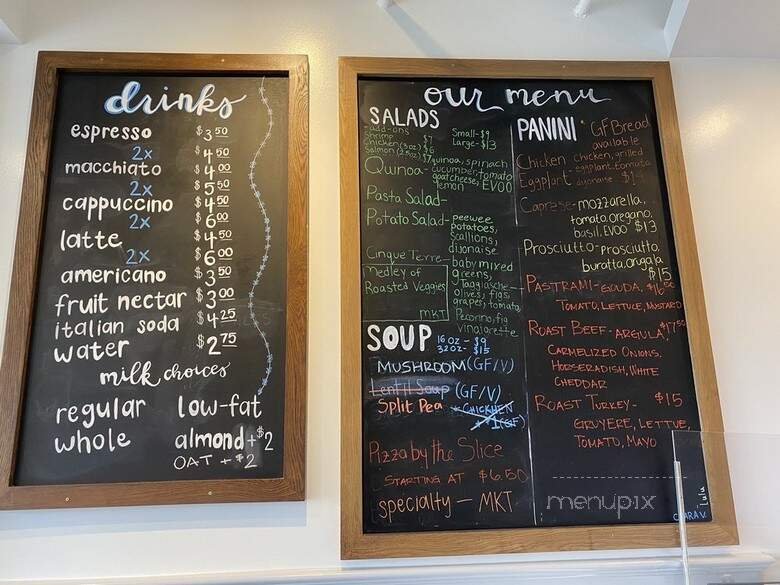 drinks
espresso $3 50
2x $4 50
macchiato $4 50
2x $5 50
cappuccino $4 50
2x $6 00
latte $4 50
2x $6 00
americano $3 50
fruit nectar $3 00
italian soda $4 25
water $2 75
milk choices
regular low-fat
whole almond+$2
OAT + $2
our menu
SALADS
add-ons
shrimp $7
chicken(3oz) $6
salmon $7
Small-$9
Large-$13
Quinoa- quinoa, spinach
cucumber, tomato
goat cheese, EVOO
lemon
Pasta Salad-
Potato Salad- peewee
potatoes,
scallions,
dijonaise
Cinque Terre- baby mixed
greens,
Taggiasche
olives, figs
grape tomato
Pecorino, fig
vinaigrette
Medley of
Roasted Veggies
MKT
SOUP 16 OZ - $9
32 OZ - $15
MUSHROOM (GF/V)
Lentil Soup (GF/V)
Split Pea
Pizza by the Slice
STARTING AT $6.50
specialty - MKT
PANINI * GF Bread
available
Chicken chicken, grilled
Eggplant- eggplant, tomato
dijonaise
Caprese- mozzarella,
tomato, oregano,
basil, EVOO $13
Prosciutto- prosciutto,
buratta, arugala
$15
PASTRAMI- GOUDA, $16 50
TOMATO, LETTUCE, MUSTARD
ROAST BEEF- ARGULA, $17 50
CARMELIZED ONIONS,
HORSERADISH, WHITE
CHEDDAR
ROAST TURKEY- $15
GRUYERE, LETTUE,
TOMATO, MAYO
menupix